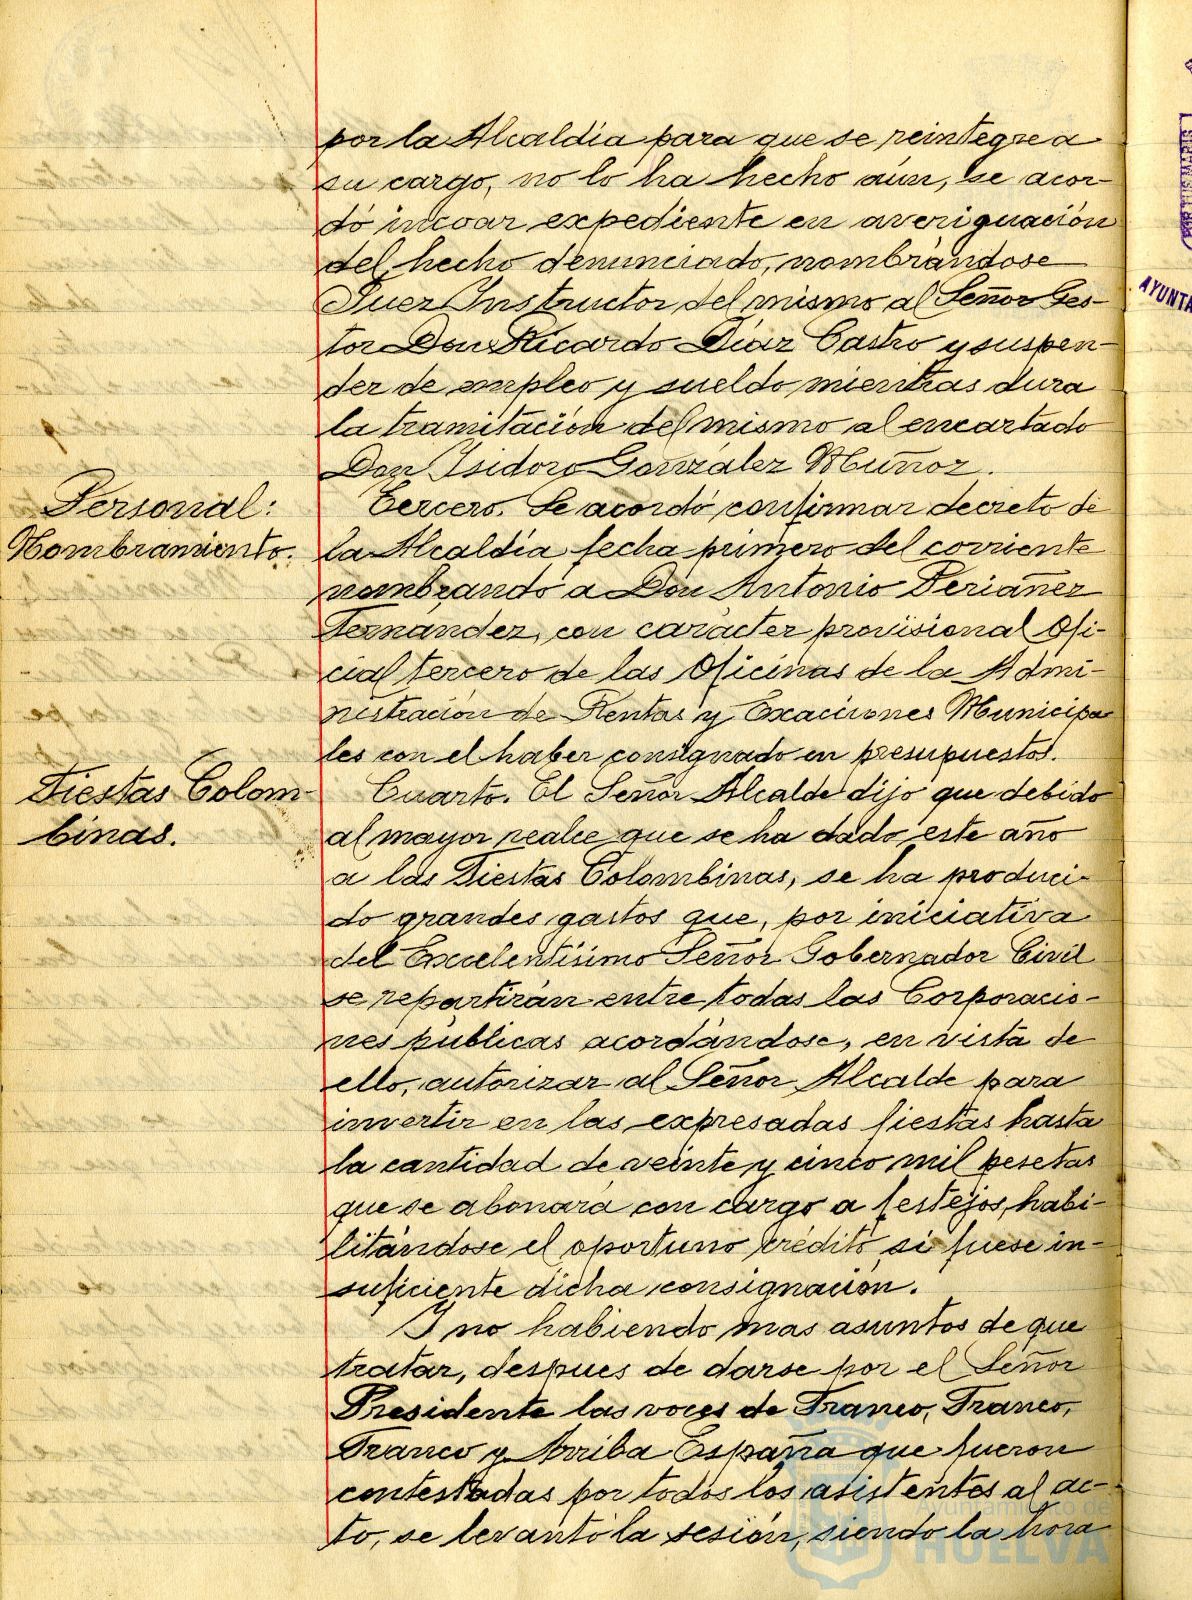 por la Alcaldía para que se reintegre a
su cargo, no lo ha hecho aún, se acor-
dó incoar expediente en averiguación
del hecho denunciado, nombrándose
Juez Instructor del mismo al Señor Ges-
tor Don Ricardo Díaz Castro y suspen-
der de empleo y sueldo mientras dura
la tramitación del mismo al encartado
Don Isidoro González Muñoz.
Personal:
Nombramiento.
Tercero. Se acordó confirmar decreto de
la Alcaldía fecha primero del corriente
nombrando a Don Antonio Periáñez
Fernández, con carácter provisional Ofi-
cial tercero de las Oficinas de la Admi-
nistración de Rentas y Exacciones Municipa
les con el haber consignado en presupuestos.
Fiestas Colom-
binas.
Cuarto. El Señor Alcalde dijo que debido
al mayor realce que se ha dado este año
a las Fiestas Colombinas, se ha produci-
do grandes gastos que, por iniciativa
del Excelentísimo Señor Gobernador Civil
se repartirán entre todas las Corporacio-
nes públicas acordándose, en vista de
ello, autorizar al Señor Alcalde para
invertir en las expresadas fiestas hasta
la cantidad de veinte y cinco mil pesetas
que se abonará con cargo a festejos, habi-
litándose el oportuno crédito si fuese in-
suficiente dicha consignación.
Y no habiendo mas asuntos de que
tratar, despues de darse por el Señor
Presidente las voces de Franco, Franco,
Franco y Arriba España que fueron
contestadas por todos los asistentes al ac-
to, se levantó la sesión, siendo la hora
Ayuntamiento de
HUELVA
AYUNTA